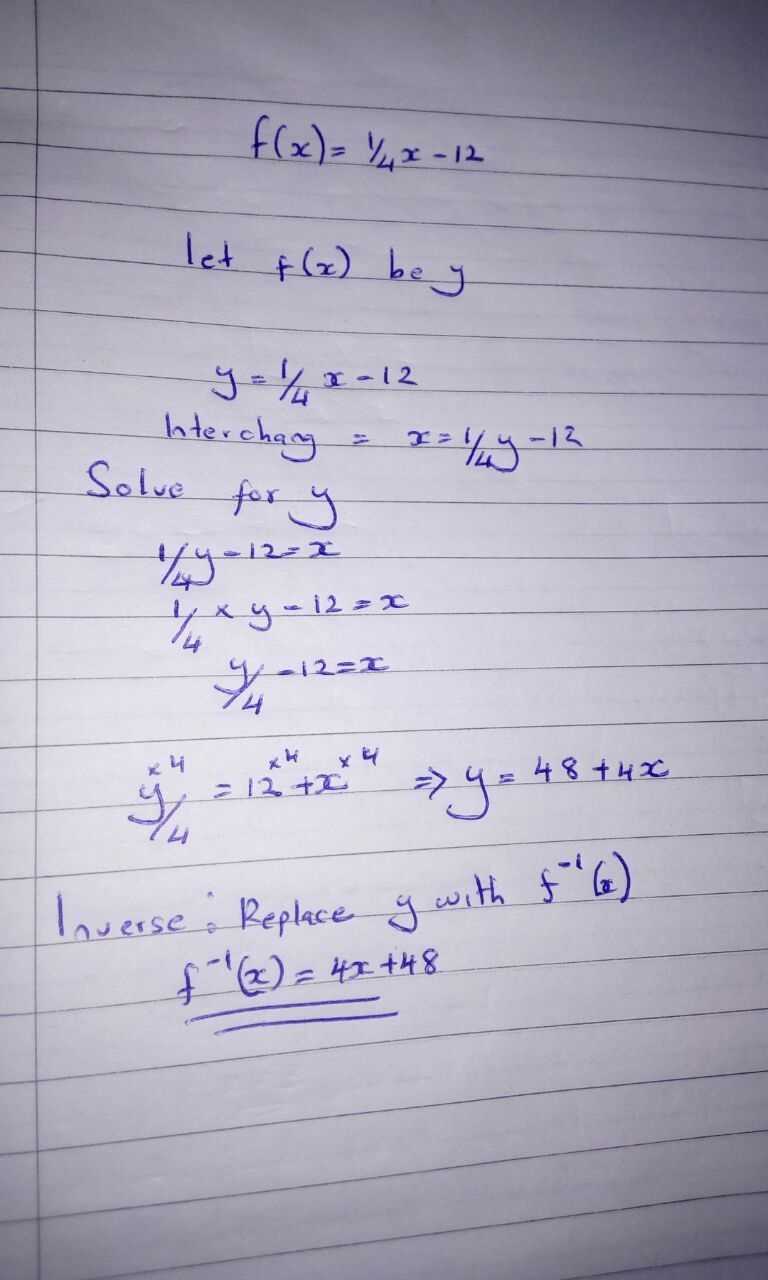 f(x)= 1/4 x - 12
let f(x) be y
y = 1/4 x - 12
Interchang = x = 1/4 y - 12
Solve for y
1/4 y - 12 = x
1/4 × y - 12 = x
y/4 - 12 = x
y/4 ×4 = 12 ×4 + x ×4 ⇒ y = 48 + 4x
Inverse : Replace y with f⁻¹(x)
f⁻¹(x) = 4x + 48